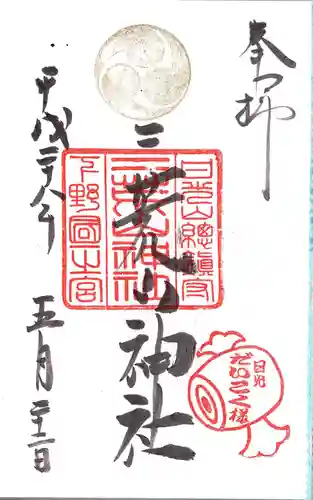 奉拝
日光山總鎮守
二荒山神社
下野国一宮
二荒山神社
日光
だいこく様
平成二十八年
五月二十二日